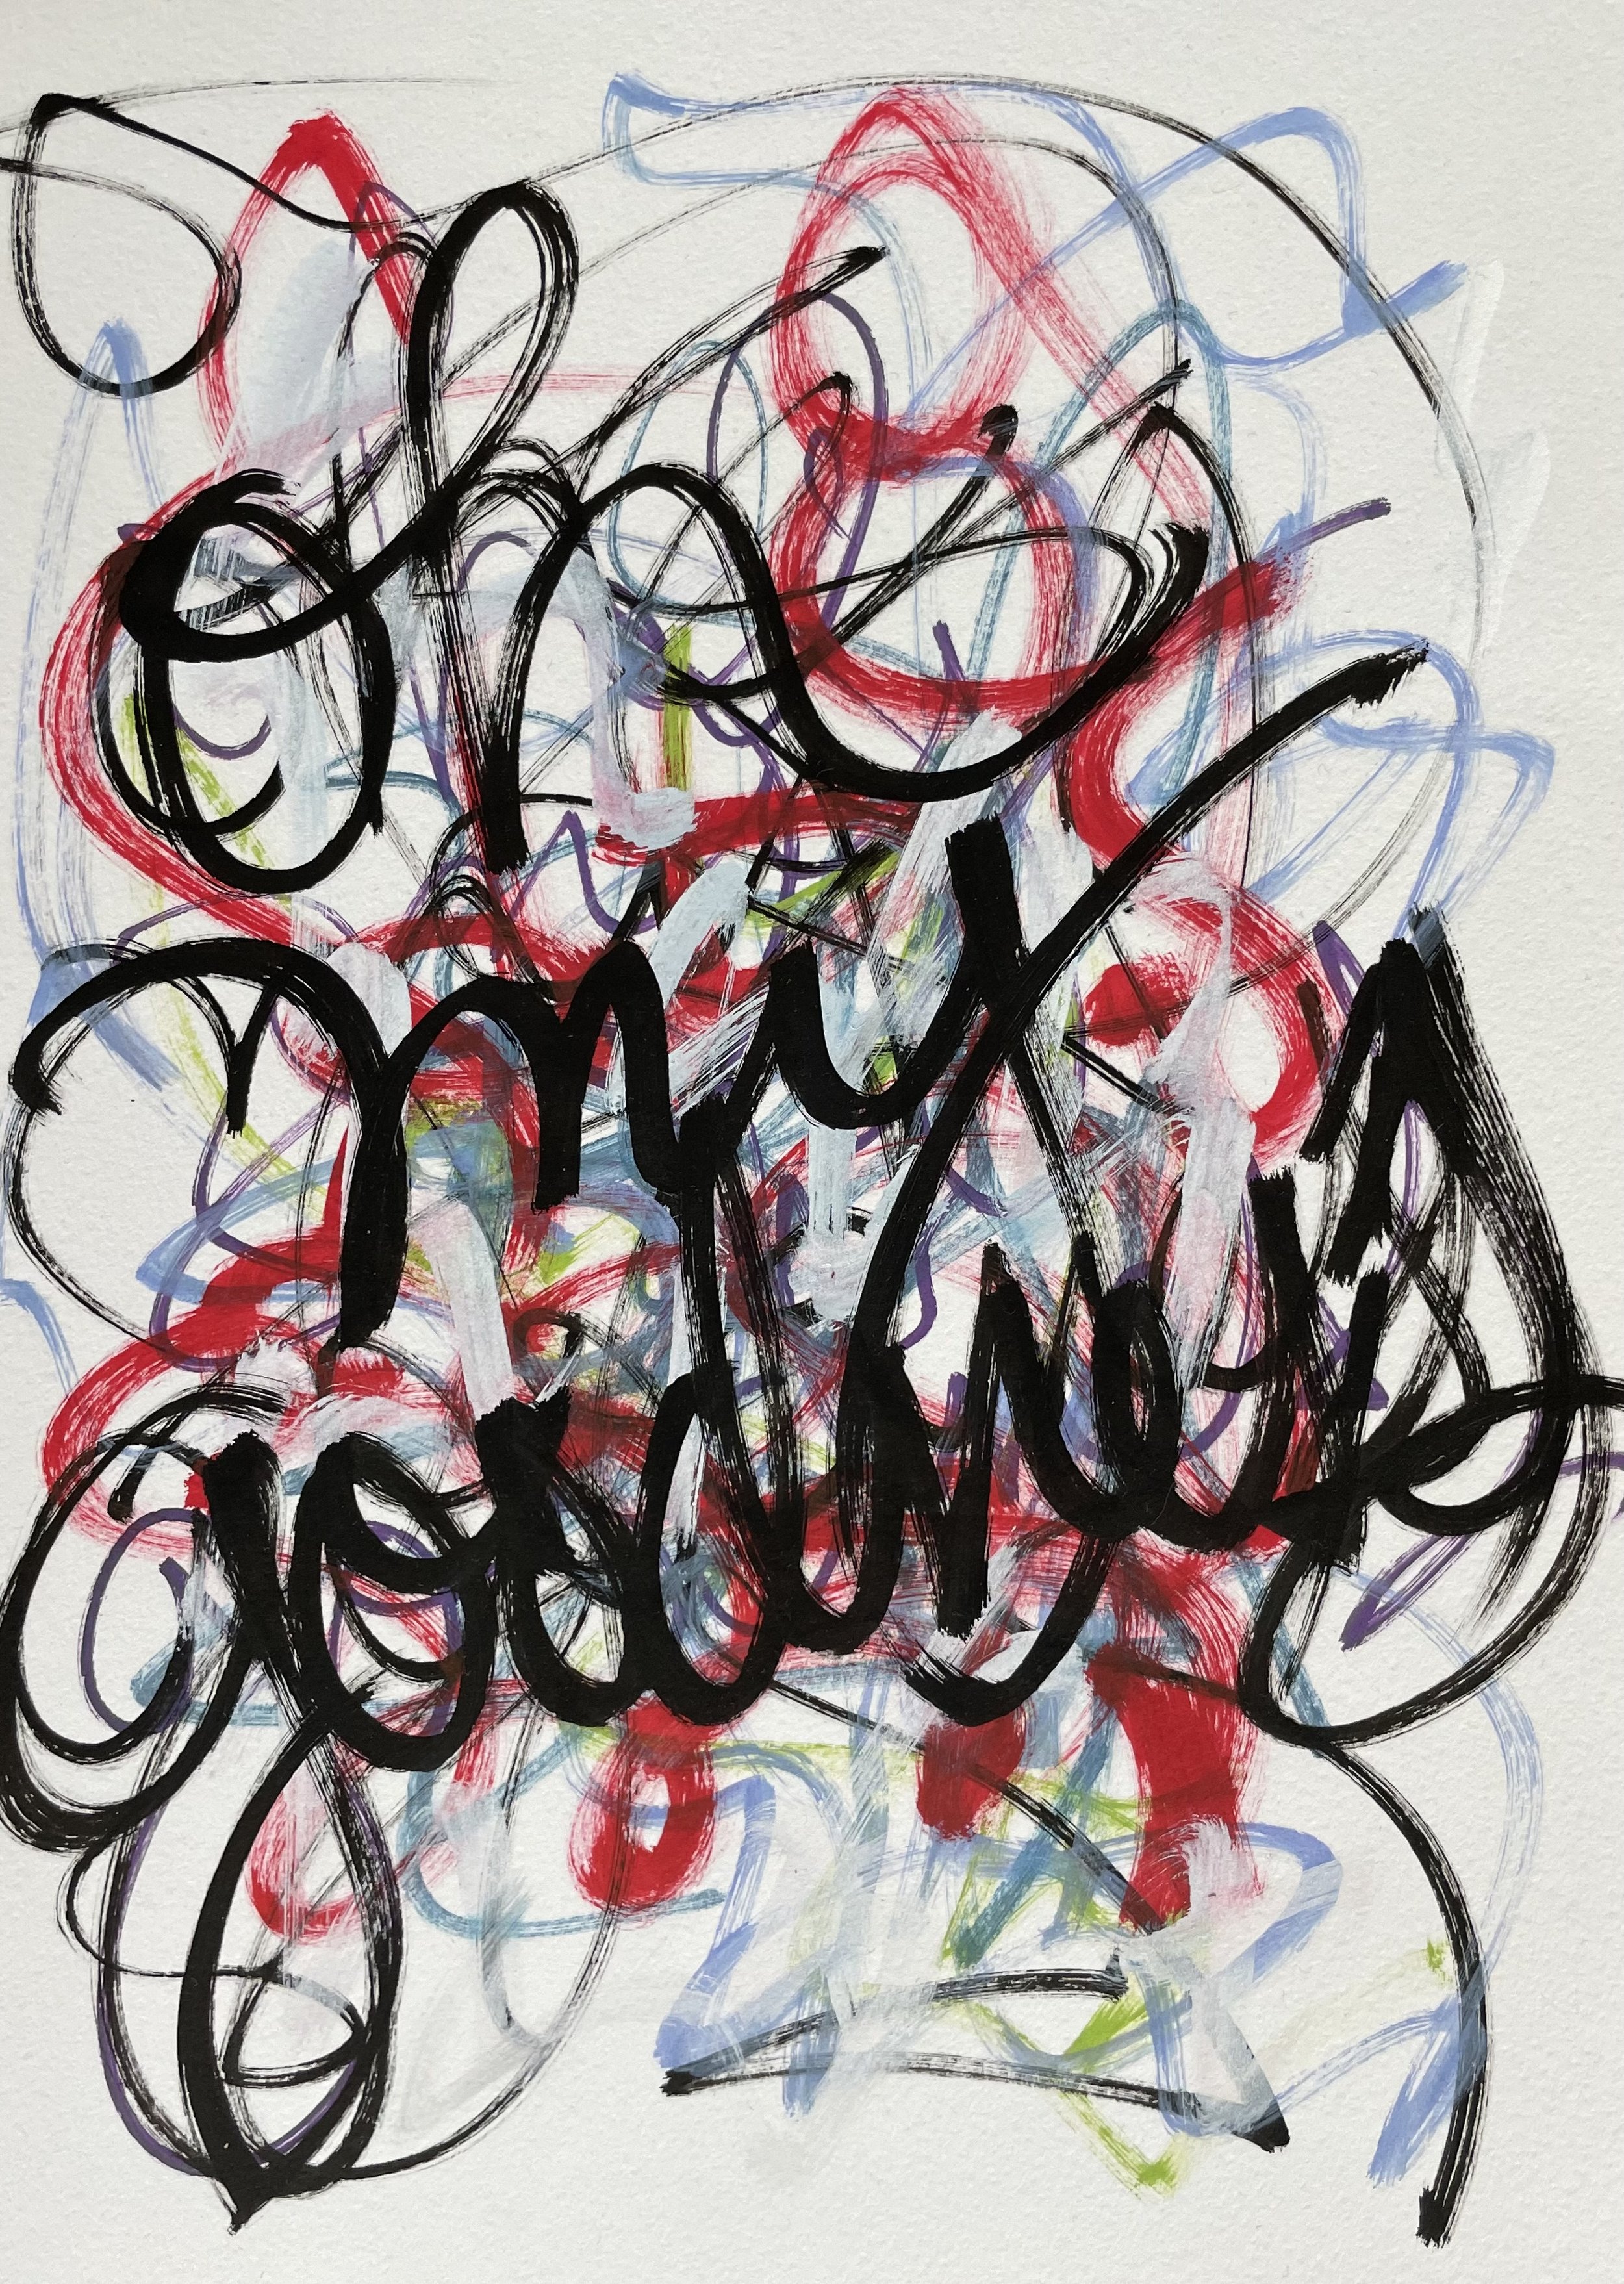 oh
my
goodness